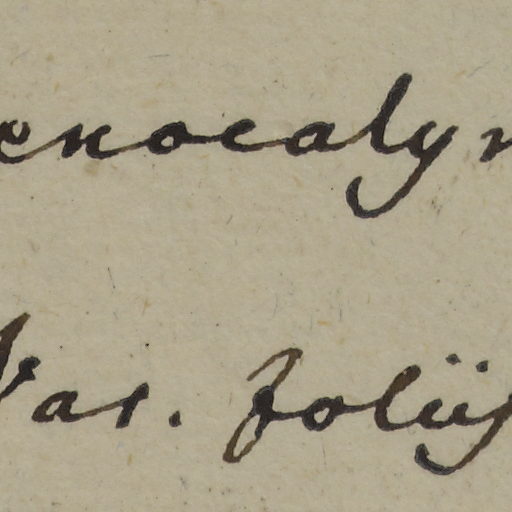 enocalyn
Var. foliis